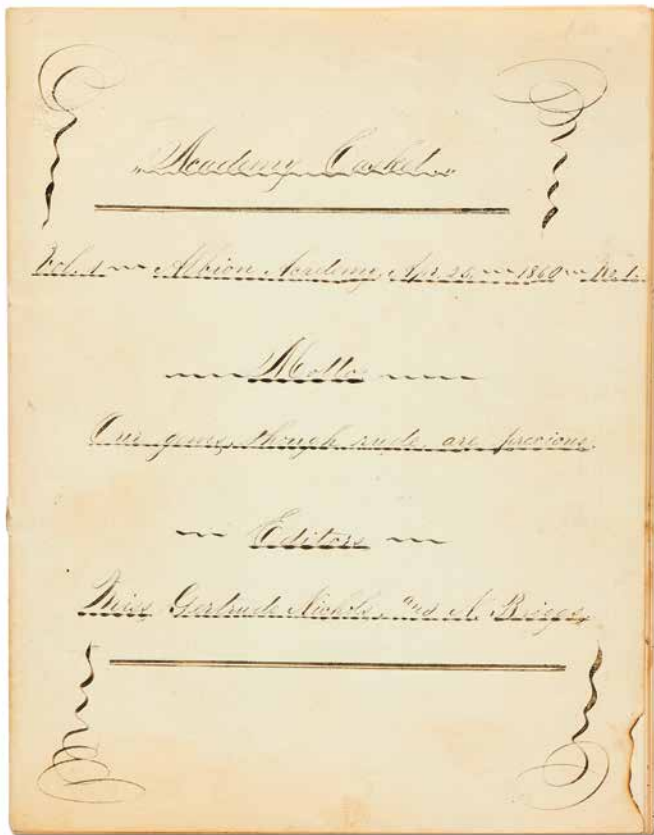 "Academy Casket."
Vol. 1 Albion Academy, Apr. 25, 1860 No. 1.
Motto
Our gems, though rude, are precious.
Editors
Miss Gertrude Nichols, and A. Briggs,